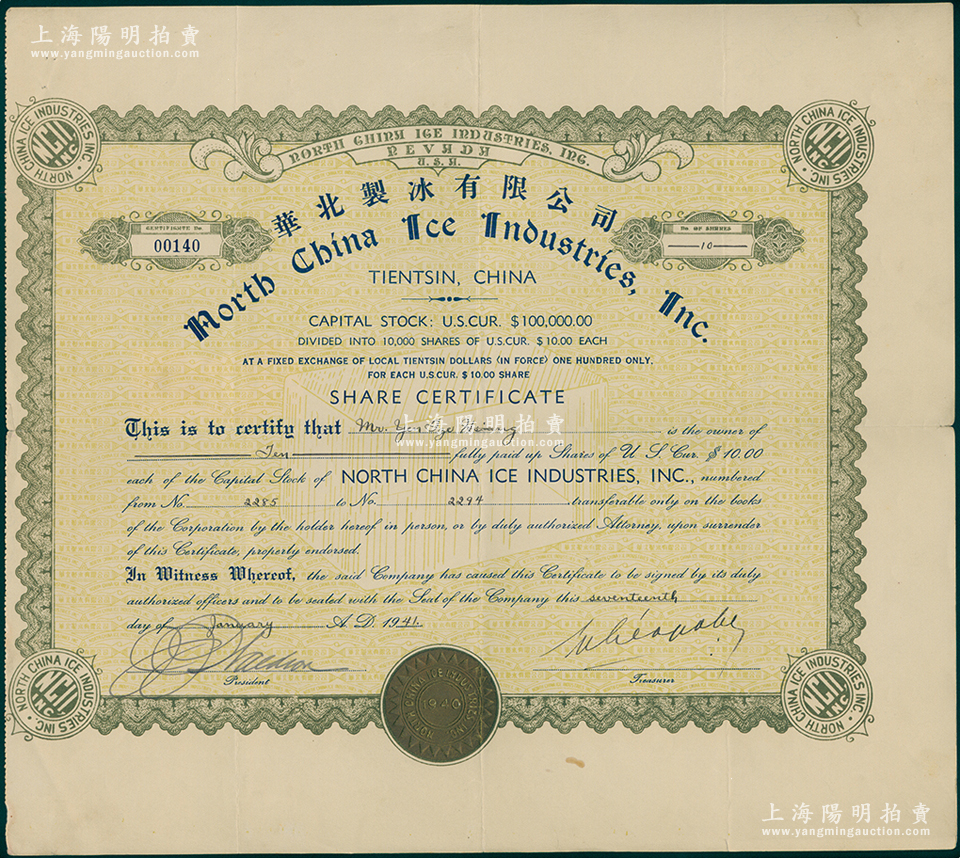 上海陽明拍賣
www.yangmingauction.com
NORTH CHINA ICE INDUSTRIES INC.
NCII
INC
NORTH CHINA ICE INDUSTRIES INC.
NCII
INC
NORTH CHINA ICE INDUSTRIES, INC.
NEVADA
U.S.A.
華北製冰有限公司
CERTIFICATE No.
00140
No OF SHARES
10
North China Ice Industries, Inc.
TIENTSIN, CHINA
CAPITAL STOCK: U.S.CUR. $100,000.00
DIVIDED INTO 10,000 SHARES OF U.S.CUR. $10.00 EACH
AT A FIXED EXCHANGE OF LOCAL TIENTSIN DOLLARS (IN FORCE) ONE HUNDRED ONLY,
FOR EACH U.S.CUR. $10.00 SHARE
SHARE CERTIFICATE
上海陽明拍賣
www.yangmingauction.com
This is to certify that Mr. is the owner of
Ten fully paid up Shares of U S Cur. $10.00
each of the Capital Stock of NORTH CHINA ICE INDUSTRIES, INC., numbered
from No. 2285 to No. 2294 transferable only on the books
of the Corporation by the holder hereof in person, or by duly authorized Attorney, upon surrender
of this Certificate, properly endorsed.
In Witness Whereof, the said Company has caused this Certificate to be signed by its duly
authorized officers and to be sealed with the Seal of the Company this seventeenth
day of January A. D. 1941.
President
Treasurer
NORTH CHINA ICE INDUSTRIES INC.
NCII
INC
NORTH CHINA ICE INDUSTRIES INC.
1940
NORTH CHINA ICE INDUSTRIES INC.
NCII
INC
上海陽明拍賣
www.yangmingauction.com